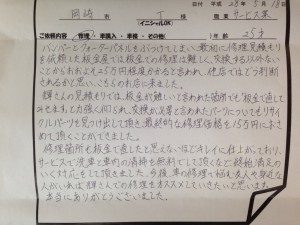 日付 平成 28年 5月 18日
岡崎 T 様 職業 サービス業
(イニシャルOK)
ご依頼内容 修理・車購入・車検・その他( ) 年齢 25才
バンパーとクォーターパネルをぶつけてしまい、最初に修理見積もり
を依頼した板金屋では板金での修理は難しく、交換する以外ない
ことからおおよそ25万円程度かかると言われ、他店ではどう判断
されるかと思い、こちらのお店に来ました。
輝さんの見積もりでは、板金が難しいと言われた箇所でも"板金で直して
みせます。"と力強く仰られ、交換が必要と言われたパーツについてもリサイ
クルパーツを見つけ出して頂き、最終的な修理価格を15万円におさ
めて頂くことができました。
修理箇所も板金で直したと思えないほどキレイに仕上がっており、
サービスで洗車と車内の清掃を無料でして頂くなど格始満足の
いく対応をして頂きました。今後、車の修理で悩む友人や身近な
人がいれば輝さんでの修理をオススメしていきたいと思います。
本当にありがとうございました。